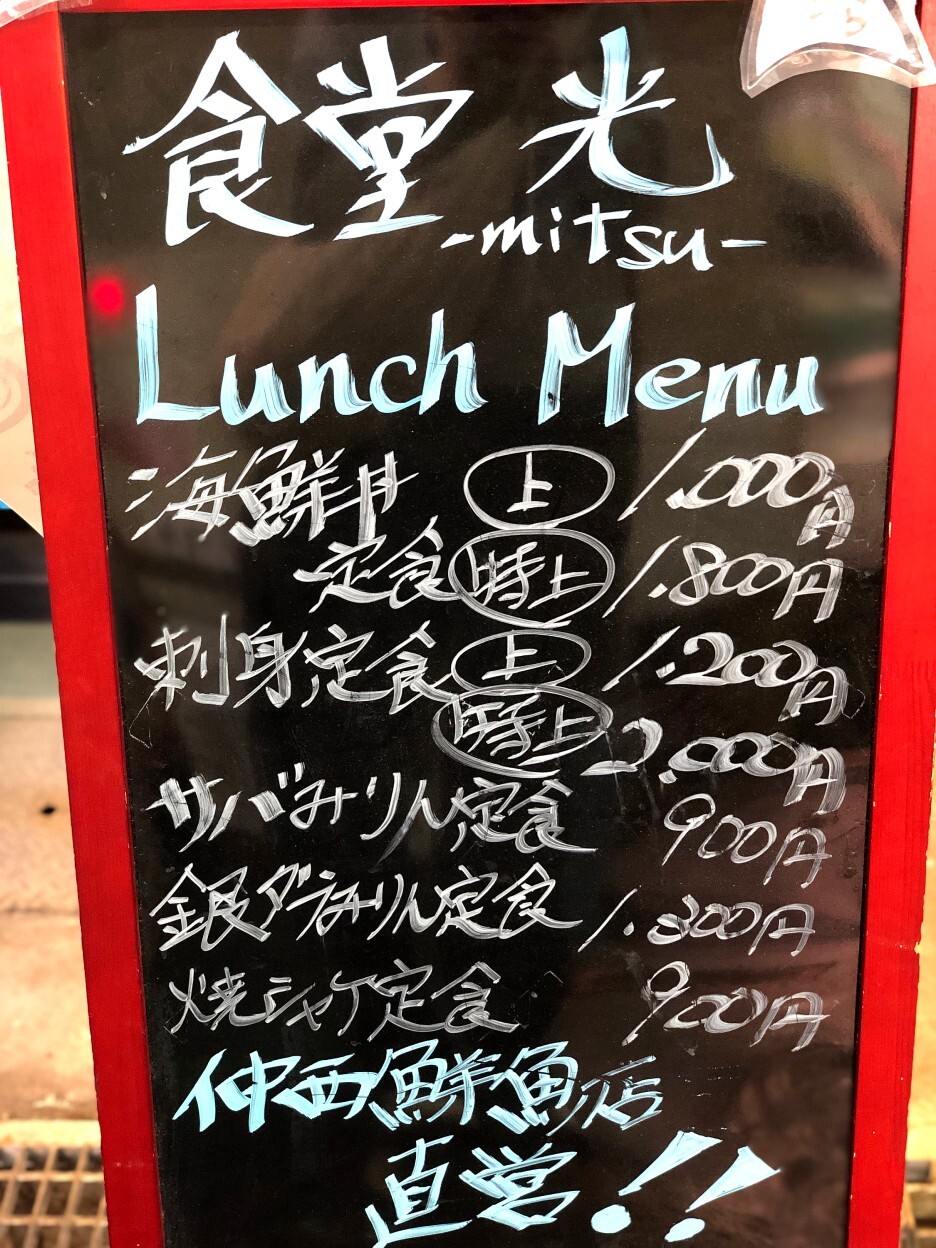 食堂 光
-mitsu-
Lunch Menu
海鮮丼 上 1.000円
定食 特上 1.800円
刺身定食 上 1.200円
特上 2.000円
サバみりん定食 900円
銀ダラみりん定食 1.300円
焼シャケ定食 900円
仲西鮮魚店
直営!!